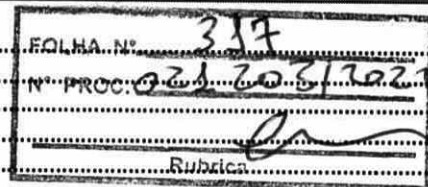 FOLHA Nº 317
Nº PROC. 021.203/202
Rubrica